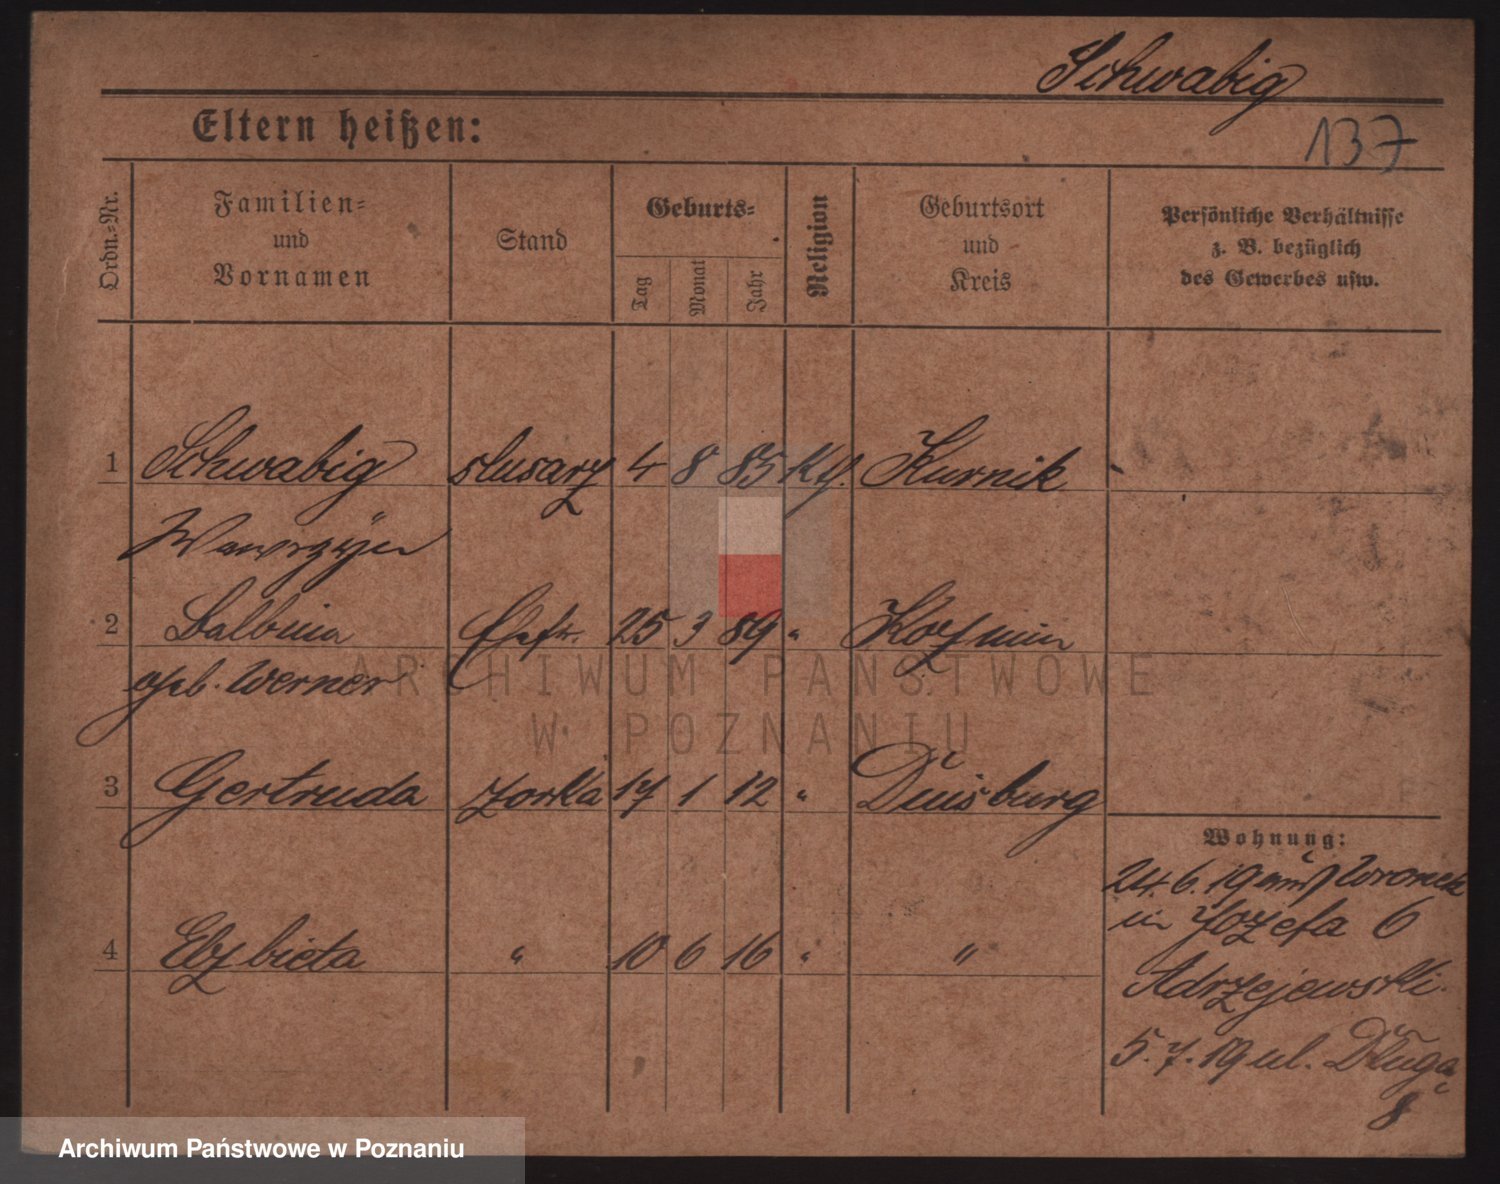 Schwabig
Eltern heißen:
137
Ordn.-Nr.
Familien-
und
Vornamen
Stand
Geburts-
Tag
Monat
Jahr
Religion
Geburtsort
und
Kreis
Persönliche Verhältnisse
z. B. bezüglich
des Gewerbes usw.
1 Schwabig slusarz 4 8 85 kth. Kurnik
Wawrzyn
2 Balbina Ehefr. 25 3 89 " Kozmin
geb. Werner
3 Gertruda zorka 17 1 12 " Duisburg
4 Elzbieta " 10 6 16 " "
Wohnung:
24.6.19 aus Wronek
in Jozefa 6
Adrzejewski.
5.7.19 ul. Długa
8
ARCHIWUM PAŃSTWOWE
W POZNANIU
Archiwum Państwowe w Poznaniu